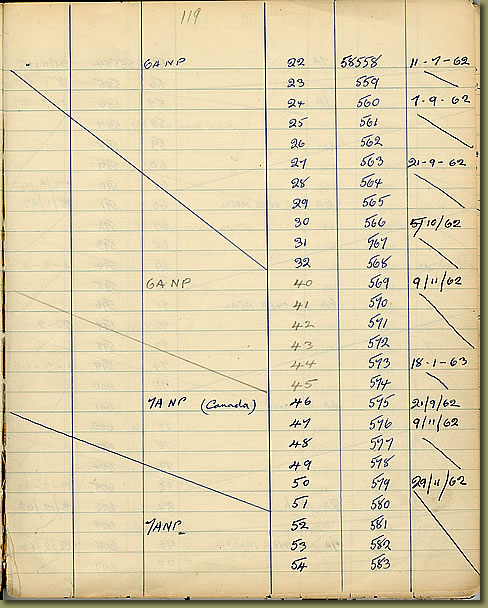 119
6ANP 22 58558 11-7-62
23 559
24 560 7.9.62
25 561
26 562
27 563 21-9-62
28 564
29 565
30 566 5/10/62
31 967
32 568
6ANP 40 569 9/11/62
41 570
42 571
43 572
44 573 18-1-63
45 574
7ANP (Canada) 46 575 21/9/62
47 576 9/11/62
48 577
49 578
50 579 29/11/62
51 580
7ANP 52 581
53 582
54 583